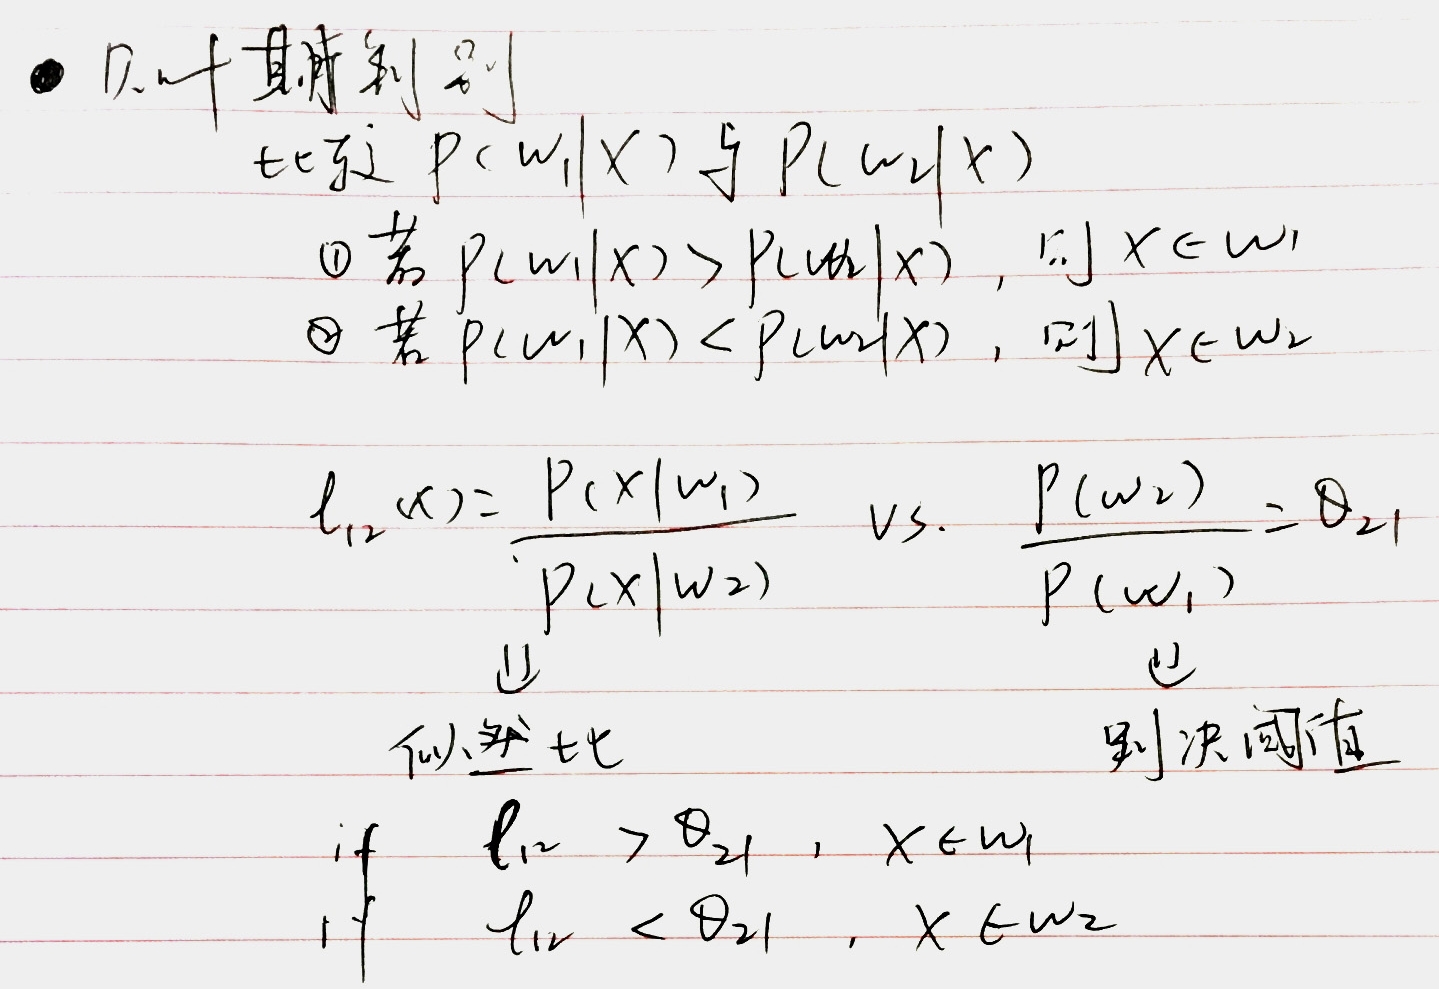 ● 贝叶斯判别
比较 P(w₁|X) 与 P(w₂|X)
① 若 P(w₁|X) > P(w₂|X) , 则 X∈w₁
② 若 P(w₁|X) < P(w₂|X) , 则 X∈w₂
l₁₂(x) = P(X|w₁) / P(X|w₂) vs. P(w₂) / P(w₁) = θ₂₁
⇓ ⇓
似然比 判决阈值
if l₁₂ > θ₂₁ , X∈w₁
if l₁₂ < θ₂₁ , X∈w₂